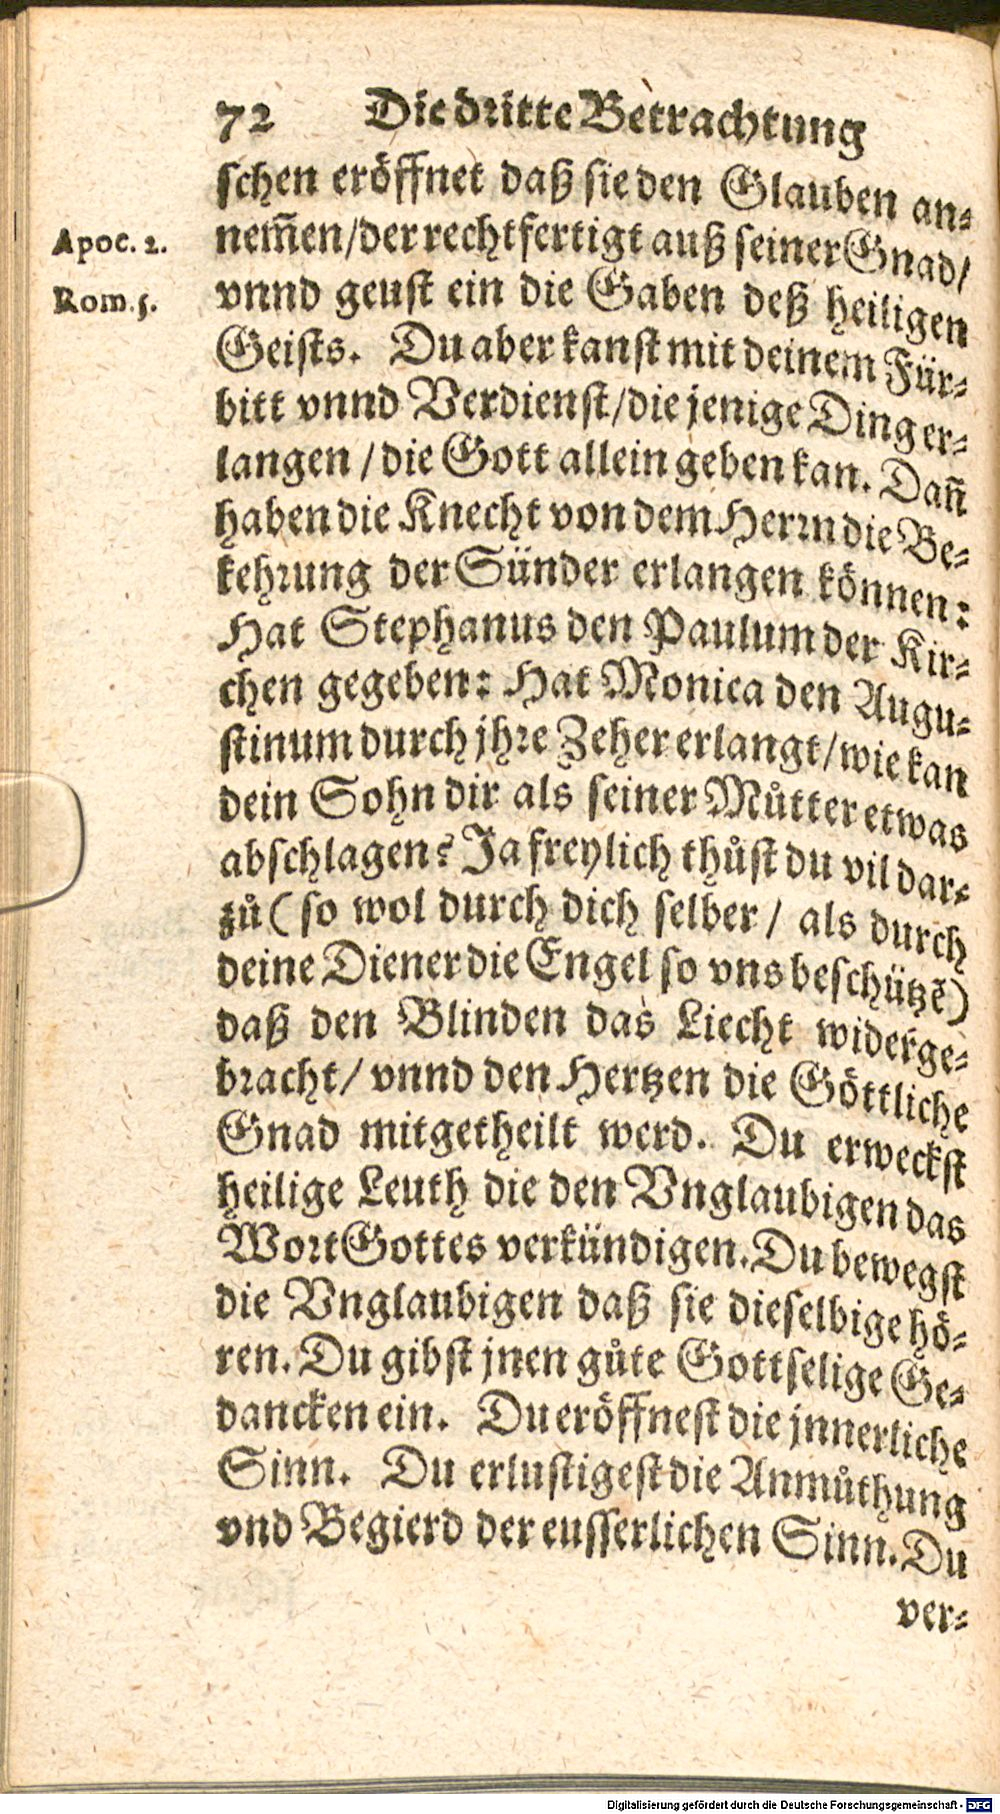 72 Die dritte Betrachtung
schen eröffnet daß sie den Glauben an-
Apoc. 2. nem̃en/der rechtfertigt auß seiner Gnad/
Rom. 5. vnnd geust ein die Gaben deß heiligen
Geists. Du aber kanst mit deinem Für-
bitt vnnd Verdienst/die jenige Ding er-
langen /die Gott allein geben kan. Dañ
haben die Knecht von dem Herrn die Be-
kehrung der Sünder erlangen können:
Hat Stephanus den Paulum der Kir-
chen gegeben: Hat Monica den Augu-
stinum durch jhre Zeher erlangt/wie kan
dein Sohn dir als seiner Můtter etwas
abschlagen? Ja freylich thůst du vil dar-
zů (so wol durch dich selber / als durch
deine Diener die Engel so vns beschützẽ)
daß den Blinden das Liecht widerge-
bracht/ vnnd den Hertzen die Göttliche
Gnad mitgetheilt werd. Du erweckst
heilige Leuth die den Vnglaubigen das
Wort Gottes verkündigen. Du bewegst
die Vnglaubigen daß sie dieselbige hö-
ren. Du gibst jnen gůte Gottselige Ge-
dancken ein. Du eröffnest die jnnerliche
Sinn. Du erlustigest die Anmůthung
vnd Begierd der eusserlichen Sinn. Du
ver-
Digitalisierung gefördert durch die Deutsche Forschungsgemeinschaft - DFG